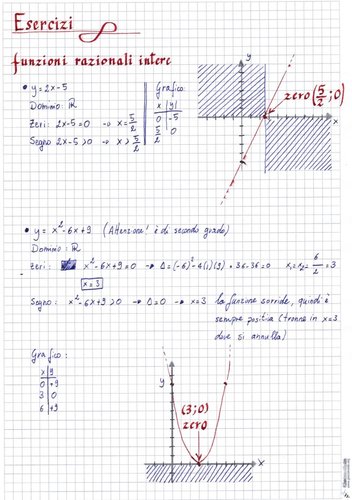 Esercizi
funzioni razionali intere
• y = 2x-5
Dominio: ℝ
Zeri: 2x-5=0 → x=5/2
Segno 2x-5>0 → x>5/2
Grafico:
x | y
0 | -5
5/2 | 0
y
zero (5/2; 0)
x
• y = x²-6x+9 (Attenzione! è di secondo grado)
Dominio: ℝ
Zeri: x²-6x+9=0 → Δ=(-6)²-4(1)(9)=36-36=0 x₁=x₂=6/2=3
x=3
Segno: x²-6x+9>0 → Δ=0 → x=3 la funzione sorride, quindi è
sempre positiva (tranne in x=3
dove si annulla)
Grafico:
x | y
0 | +9
3 | 0
6 | +9
y
(3;0)
zero
x